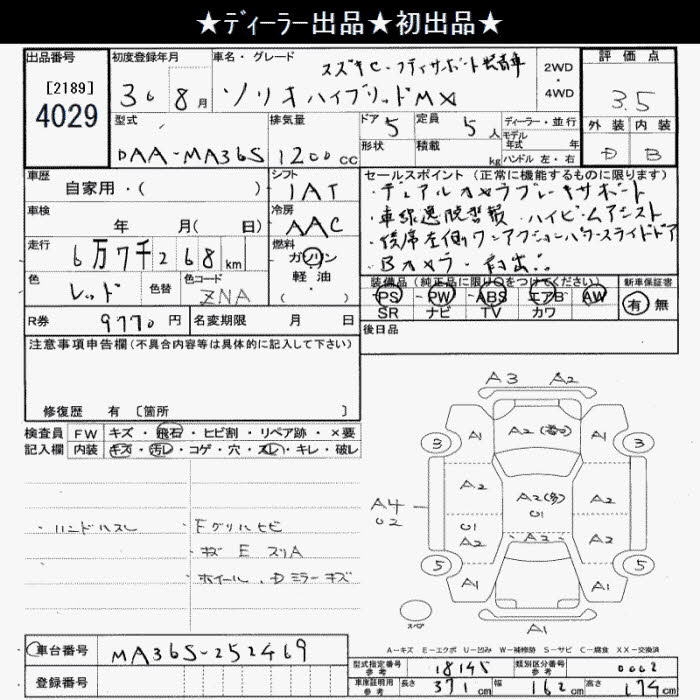 ★ディーラー出品★初出品★
出品番号 初度登録年月 車名・グレード スズキ 2WD 評価点
[2189] 4029 30 8月 ソリオハイブリッドMX ・ 4WD 3.5
型式 排気量 ドア 5 定員 5人 ディーラー・並行 外装 内装
DAA-MA36S 1200cc 形状 積載 kg モデル年式 年 D B
ハンドル 左・右
車歴 シフト セールスポイント (正常に機能するものに限ります)
自家用・( ) IAT ・デュアルカメラブレーキサポート
車検 冷房 ・車線逸脱警報・ハイビームアシスト
年 月( 日) AAC ・後席左側ワンアクションパワースライドドア
走行 6万7千268km 燃料 ガソリン ・Bカメラ・初出品
色 レッド 色替 色コード ZNA 軽油 ・( )
装備品 (純正品に限り○をつけてください) 新車保証書
PS・PW・ABS・エアB・AW 有 無
SR ナビ TV カワ
R券 9770円 名変期限 月 日 後日品
注意事項申告欄(不具合内容等は具体的に記入して下さい)
修復歴 有 [箇所 ]
検査員 FW キズ・飛石・ヒビ割・リペア跡・×要
記入欄 内装 キズ・汚レ・コゲ・穴・スレ・キレ・破レ
・ハンドルスレ ・Fグリルヒビ
・キズ E スリA
・ホイール、Dミラーキズ
A3 A2
3 A1 A2 A1 3
A2 A2
A4 02 A2(多) 01
01 A2 A2 A2
5 A1 A1 5
スペア A1
A-キズ E-エクボ U-凹み W-補修跡 S-サビ C-腐食 XX-交換済
車台番号 MA36S-252469 型式指定番号 参考 18145 類別区分番号 参考 0002
登録番号 車庫証明用 参考 長さ 371cm 幅 162cm 高さ 174cm